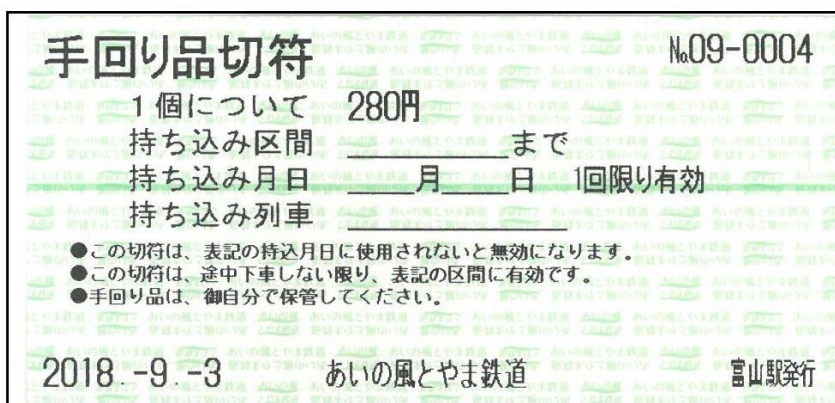 手回り品切符 №09-0004
1個について 280円
持ち込み区間 ＿＿＿＿＿＿まで
持ち込み月日 ＿＿月＿＿日 1回限り有効
持ち込み列車 ＿＿＿＿＿＿
●この切符は、表記の持込月日に使用されないと無効になります。
●この切符は、途中下車しない限り、表記の区間に有効です。
●手回り品は、御自分で保管してください。
2018.-9.-3 あいの風とやま鉄道 富山駅発行